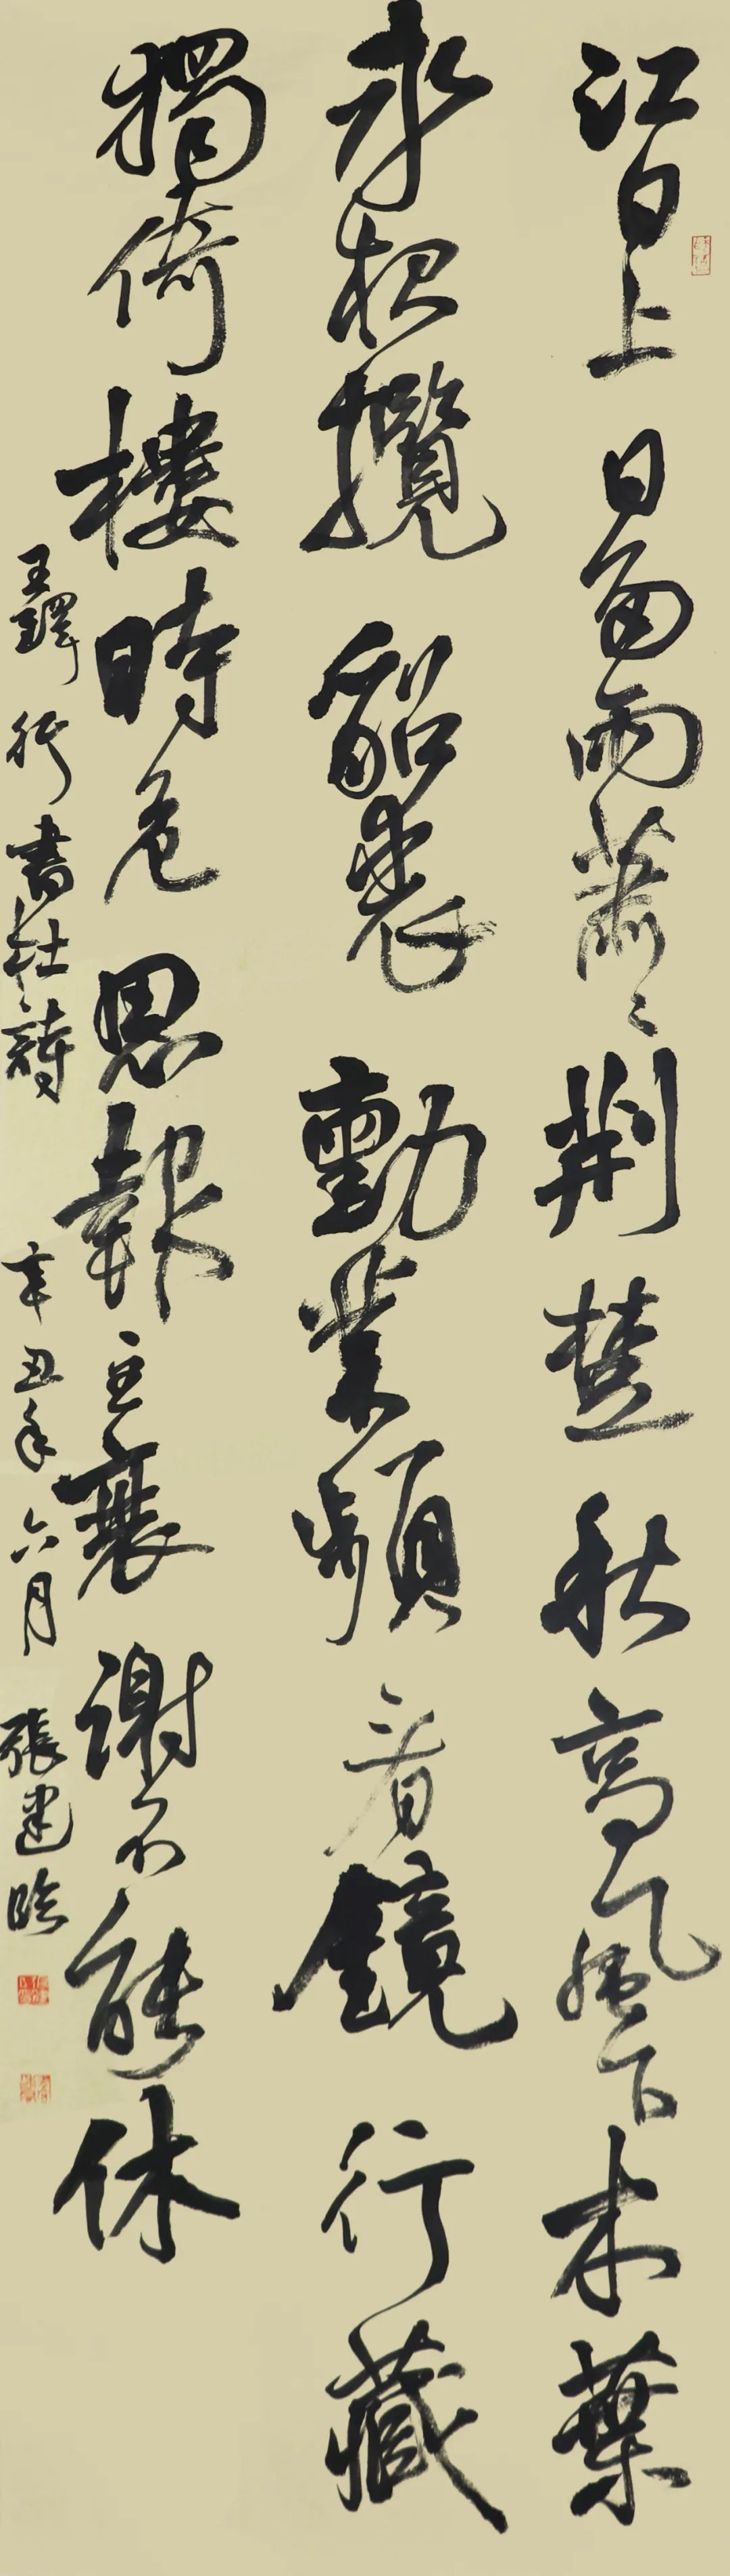 江日上日多雨蕭〻荊楚秋高風下木葉
永夜攬貂裘勳業頻看鏡行藏
獨倚樓時危思報主衰謝不能休
王鐸行書杜詩 辛丑年六月 張建臨